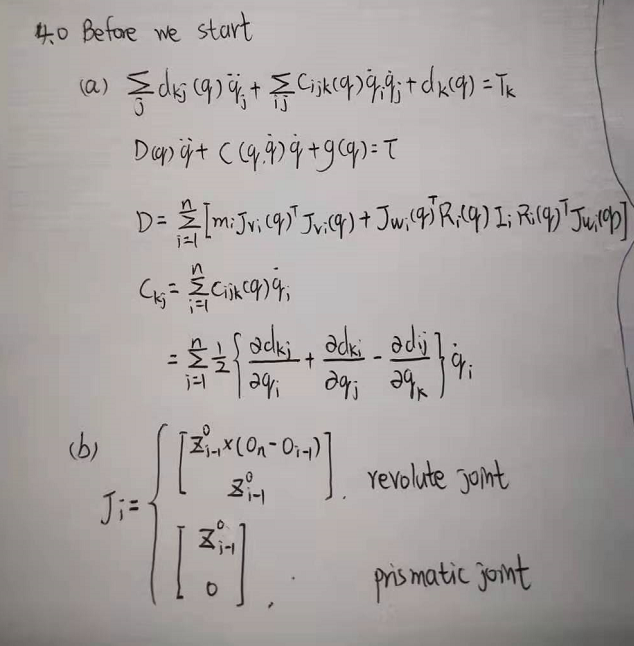 4.0 Before we start
(a) ∑_j d_kj(q) q̈_j + ∑_ij C_ijk(q) q̇_i q̇_j + d_k(q) = T_k
D(q) q̈ + C(q, q̇) q̇ + g(q) = τ
D = ∑_{i=1}^{n} [m_i J_vi(q)^T J_vi(q) + J_wi(q)^T R_i(q) I_i R_i(q)^T J_wi(q)]
C_kj = ∑_{i=1}^{n} C_ijk(q) q̇_i
= ∑_{i=1}^{n} 1/2 { ∂d_kj/∂q_i + ∂d_ki/∂q_j - ∂d_ij/∂q_k } q̇_i
(b) J_i = { [ Z_{i-1}^0 × (O_n - O_{i-1}) ; Z_{i-1}^0 ] . revolute joint
[ Z_{i-1}^0 ; 0 ] , prismatic joint